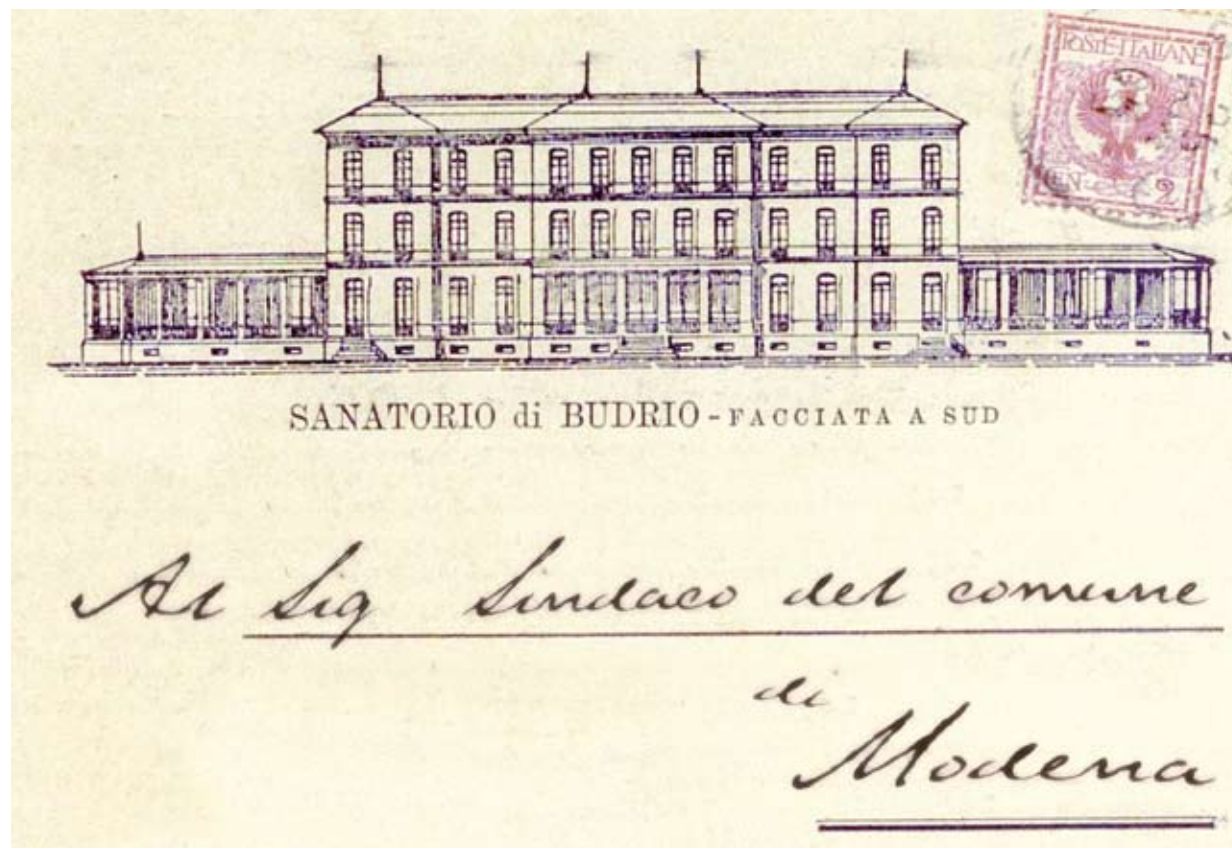 POSTE ITALIANE
CEN 2
SANATORIO di BUDRIO - FACCIATA A SUD
Al Sig Sindaco del comune
di
Modena